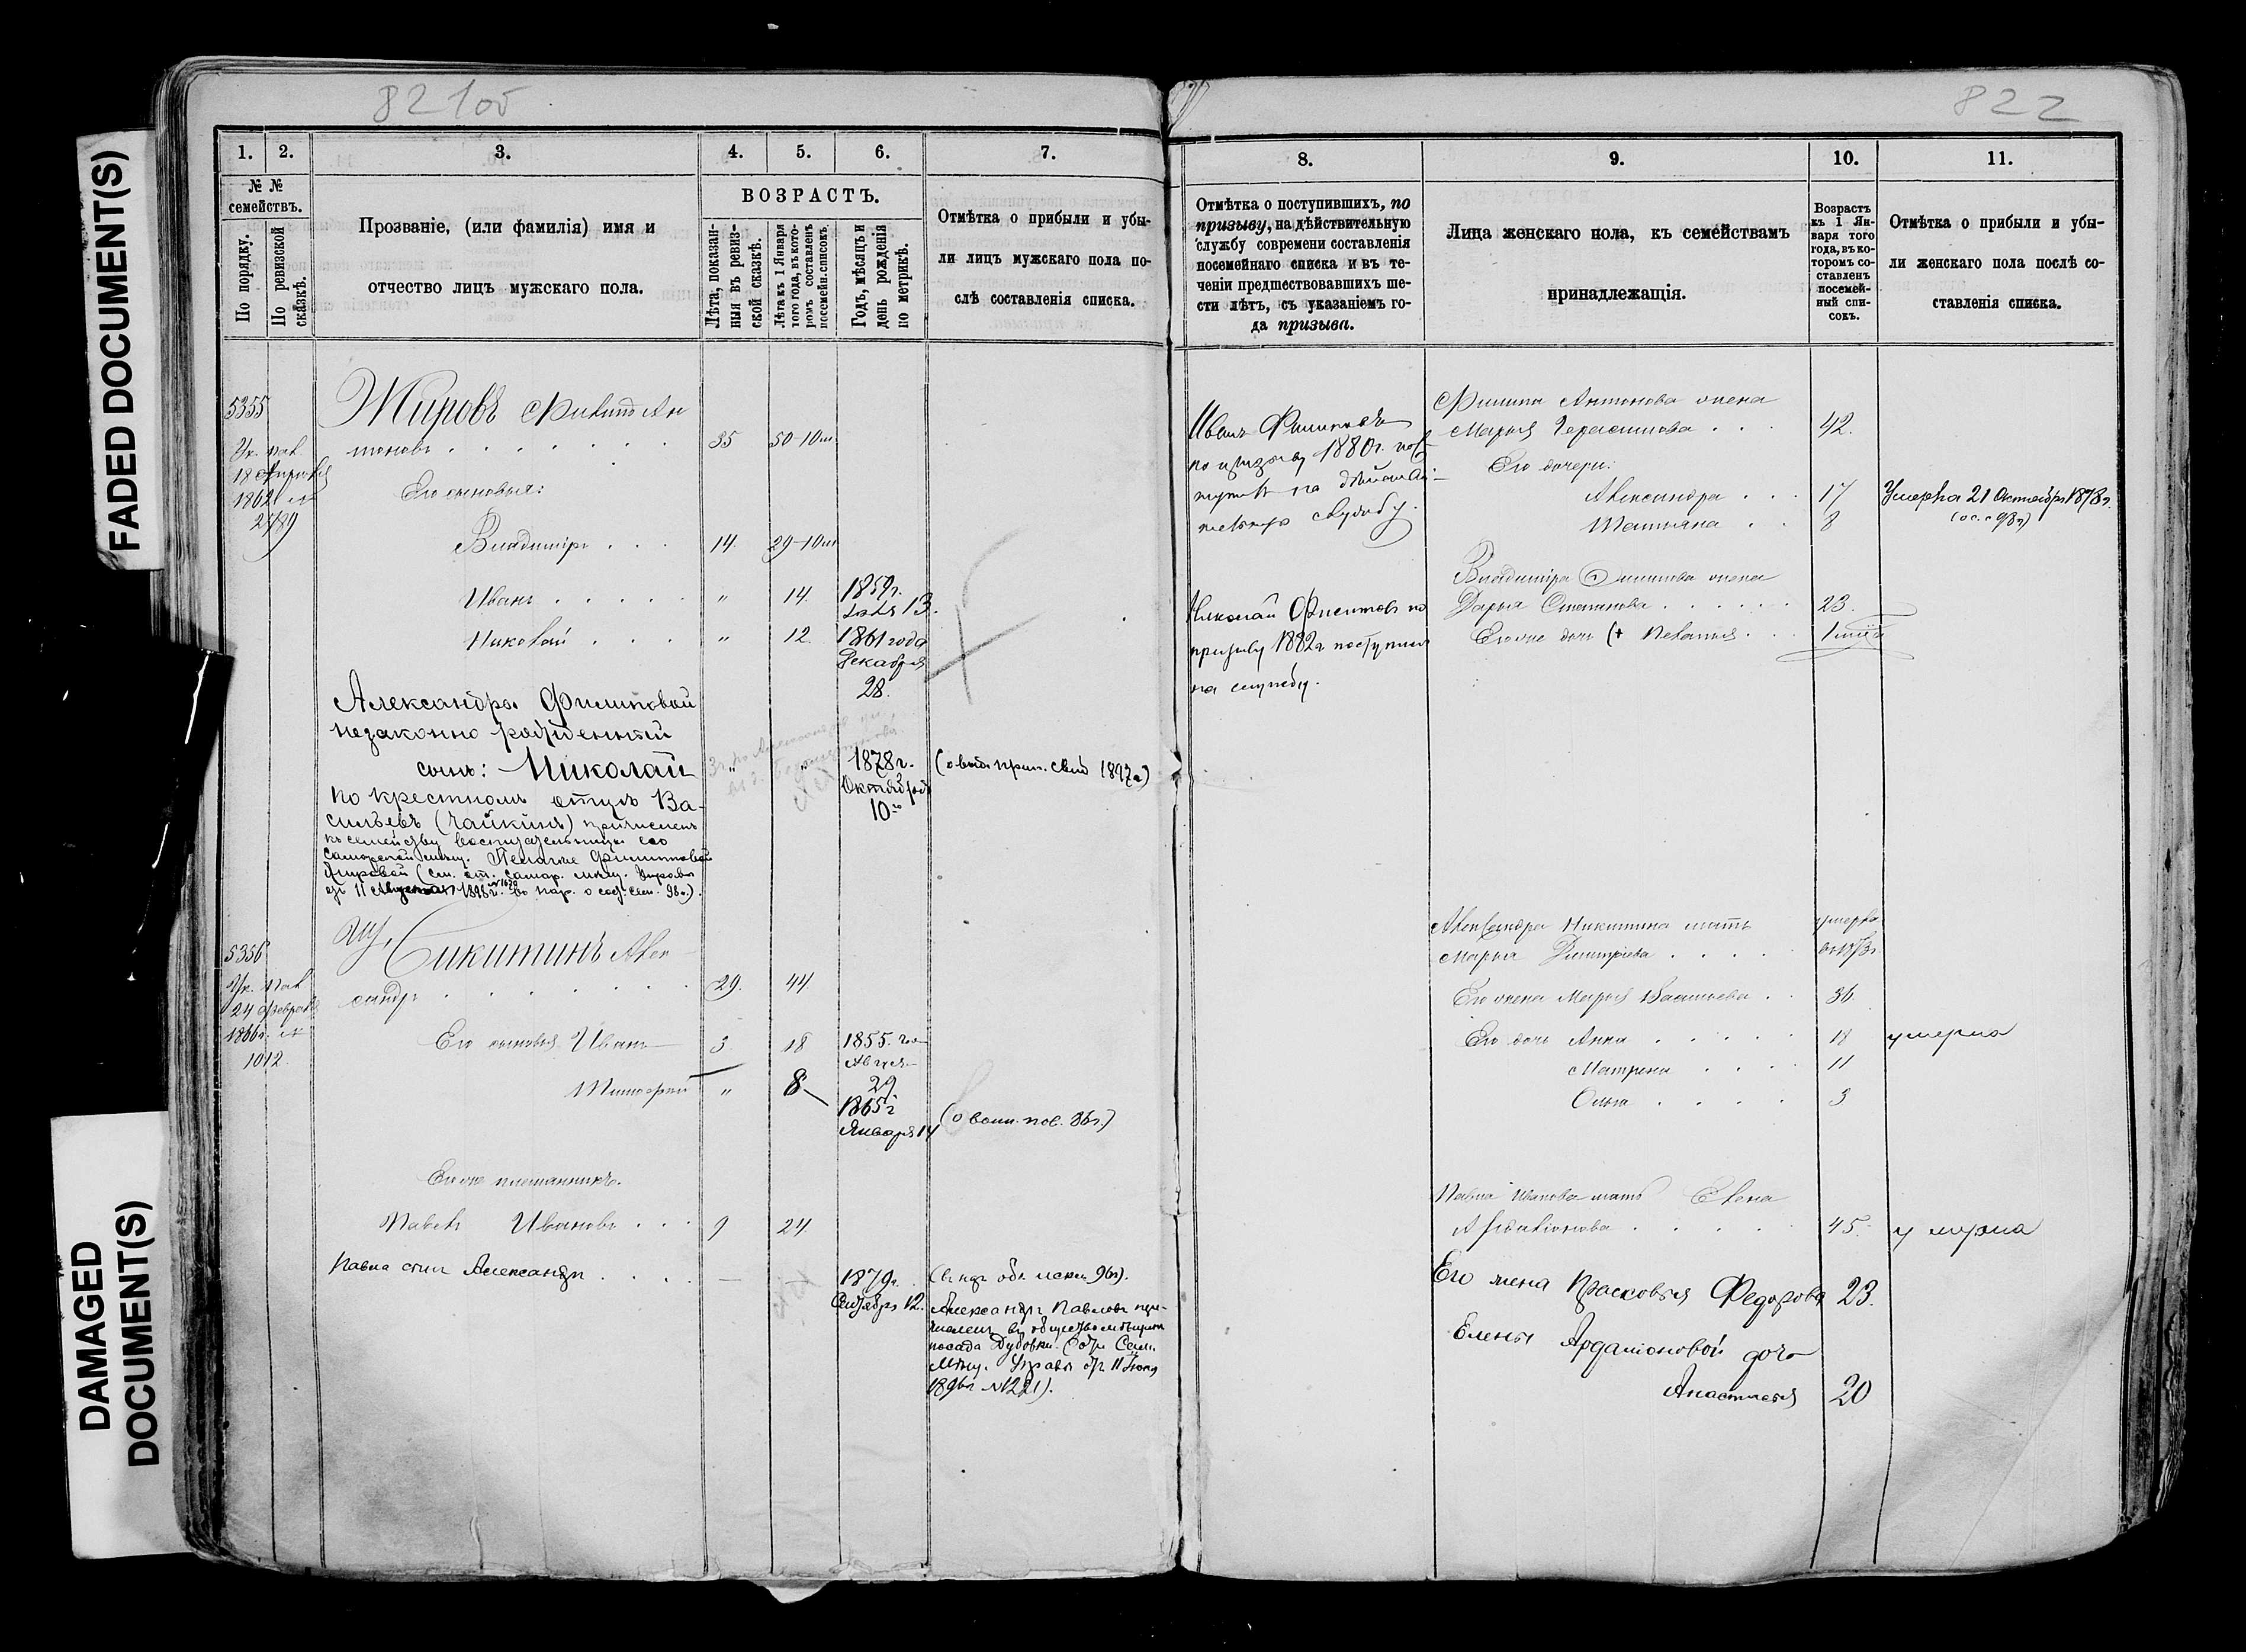 FADED DOCUMENT(S)
DAMAGED
DOCUMENT(S)
82105
822
1.
2.
3.
4.
5.
6.
7.
№ №
семействъ.
По порядку.
По ревизской
сказкѣ.
Прозваніе, (или фамилія) имя и
отчество лицъ мужскаго пола.
ВОЗРАСТЪ.
Лѣта, показан-
ныя въ ревиз-
ской сказкѣ.
Лѣта къ 1 Января
того года, въ кото-
ромъ составленъ
посемейн. списокъ.
Годъ, мѣсяцъ и
день рожденія
по метрикѣ.
Отмѣтка о прибыли и убы-
ли лицъ мужскаго пола по-
слѣ составленія списка.
5355
18 Апрѣля
Жировъ Филипъ Ан
тоновъ
35
50-10 м
Его сыновья:
Владиміръ
14.
29-10 м
Иванъ
"
14.
1859г.
13.
Николай
"
12.
1861 года
Декабря
28.
Александры Филиповой
незаконно рожденный
сынъ: Николай
"
"
1878 г.
Октября
10го
по крестномъ отцѣ Ва-
сильевъ (Чайкинъ) причисленъ
къ семейству воспитательницы его
самарской мѣщ. Пелагеи Филипповой
Жировой (см. от. самар. мѣщ. Управы
5356
24 Февраля
1866г.
1012.
Никитинъ Алек
сандръ
29.
44
Его сыновья Иванъ
3
18
1855. го
Август
29.
Тимофей
"
8
1865 г
Января 14
(о воин. пов. 86г.)
Его же племянникъ.
Павелъ Ивановъ
9
24
Павла сынъ Александръ
1879г.
Сентября 12.
Александръ Павловъ при-
численъ въ общество мѣщанъ
посада Дубовки.
8.
9.
10.
11.
Отмѣтка о поступившихъ, по
призыву, на дѣйствительную
службу современи составленія
посемейнаго списка и въ те-
ченіи предшествовавшихъ ше-
сти лѣтъ, съ указаніемъ го-
да призыва.
Лица женскаго пола, къ семействамъ
принадлежащія.
Возрастъ
къ 1 Ян-
варя того
года, въ ко-
торомъ со-
ставленъ
посемей-
ный спи-
сокъ.
Отмѣтка о прибыли и убы-
ли женскаго пола послѣ со-
ставленія списка.
Иванъ Филиповъ
по призыву 1880г. пос
тупилъ на дѣйстви-
тельную службу.
Николай Филиповъ по
призыву 1882г поступилъ
на службу.
Филипа Антонова жена
Марья Герасимова
42.
Его дочери:
Александра
17
Умерла 21 Октября 1878г.
Татьяна
8
Владиміра Филипова жена
Дарья Степанова
23.
Его же дочь Пелагея
1
Александра Никитина мать
умерла
Марья Дмитріева
Его жена Марья Васильева
36
Его дочь Анна
18
умерла
Матрена
11
Ольга
3
Павла Иванова мать Елена
Ардаліонова
45.
умерла
Его жена Прасковья Федорова
23.
Елены Ардаліоновой дочь
Анастасья
20